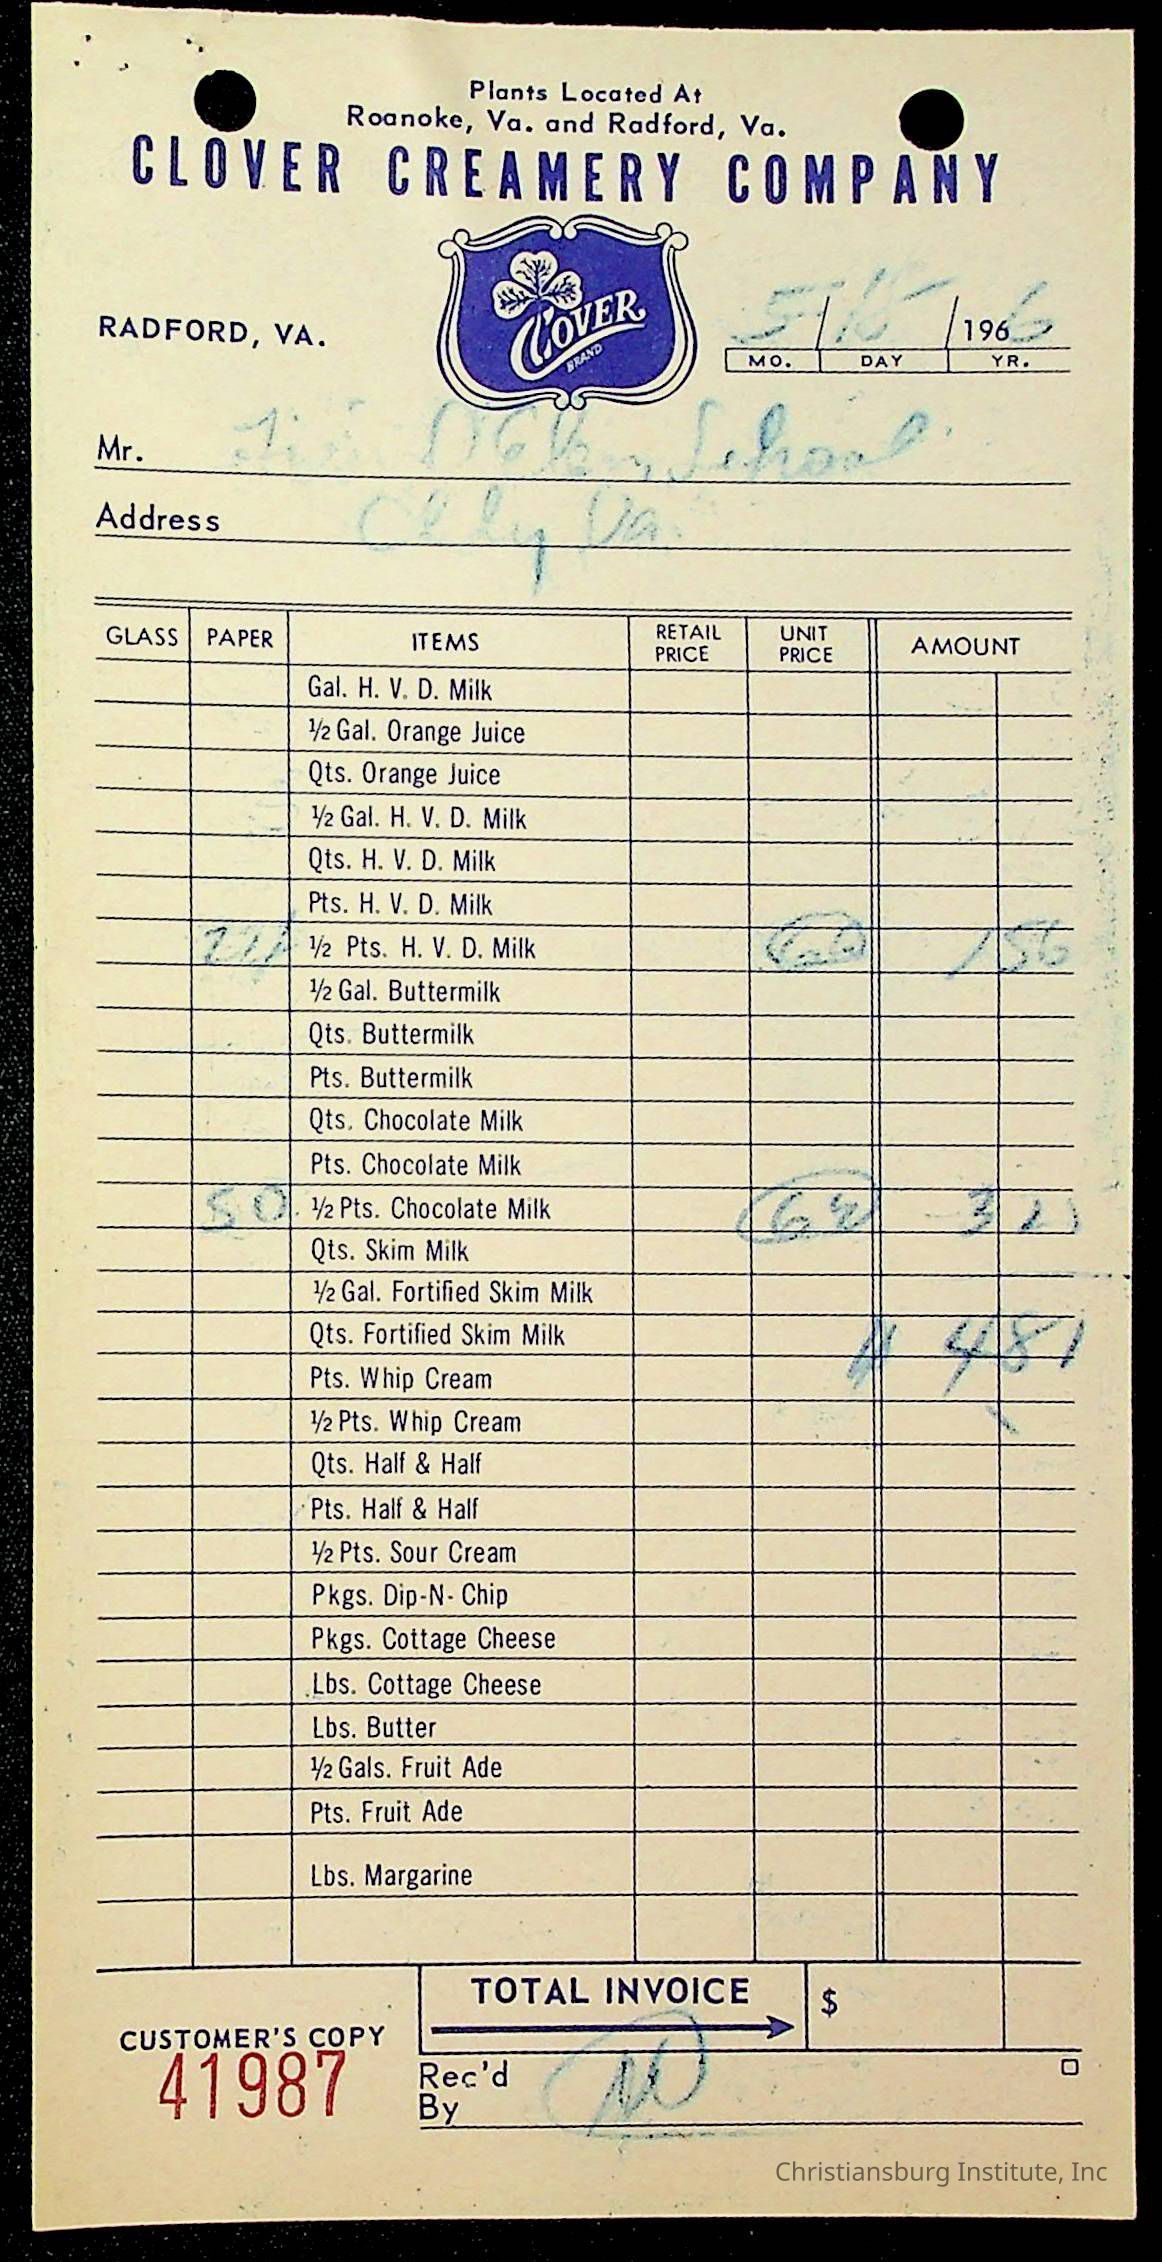 Plants Located At
Roanoke, Va. and Radford, Va.
CLOVER CREAMERY COMPANY
CLOVER
BRAND
RADFORD, VA.
5 / 18 / 1966
MO. DAY YR.
Mr. School
Address Va.
GLASS PAPER ITEMS RETAIL PRICE UNIT PRICE AMOUNT
Gal. H. V. D. Milk
½ Gal. Orange Juice
Qts. Orange Juice
½ Gal. H. V. D. Milk
Qts. H. V. D. Milk
Pts. H. V. D. Milk
½ Pts. H. V. D. Milk 156
½ Gal. Buttermilk
Qts. Buttermilk
Pts. Buttermilk
Qts. Chocolate Milk
Pts. Chocolate Milk
50 ½ Pts. Chocolate Milk
Qts. Skim Milk
½ Gal. Fortified Skim Milk
Qts. Fortified Skim Milk 481
Pts. Whip Cream
½ Pts. Whip Cream
Qts. Half & Half
Pts. Half & Half
½ Pts. Sour Cream
Pkgs. Dip-N-Chip
Pkgs. Cottage Cheese
Lbs. Cottage Cheese
Lbs. Butter
½ Gals. Fruit Ade
Pts. Fruit Ade
Lbs. Margarine
TOTAL INVOICE $
CUSTOMER'S COPY
41987
Rec'd
By
Christiansburg Institute, Inc